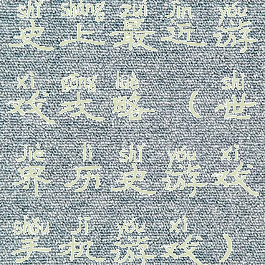 shǐ shàng zuì jìn yóu
史上最近游
xì gōng lüè shì
戏攻略（世
jiè lì shǐ yóu xì
界历史游戏
shǒu jī yóu xì
手机游戏）